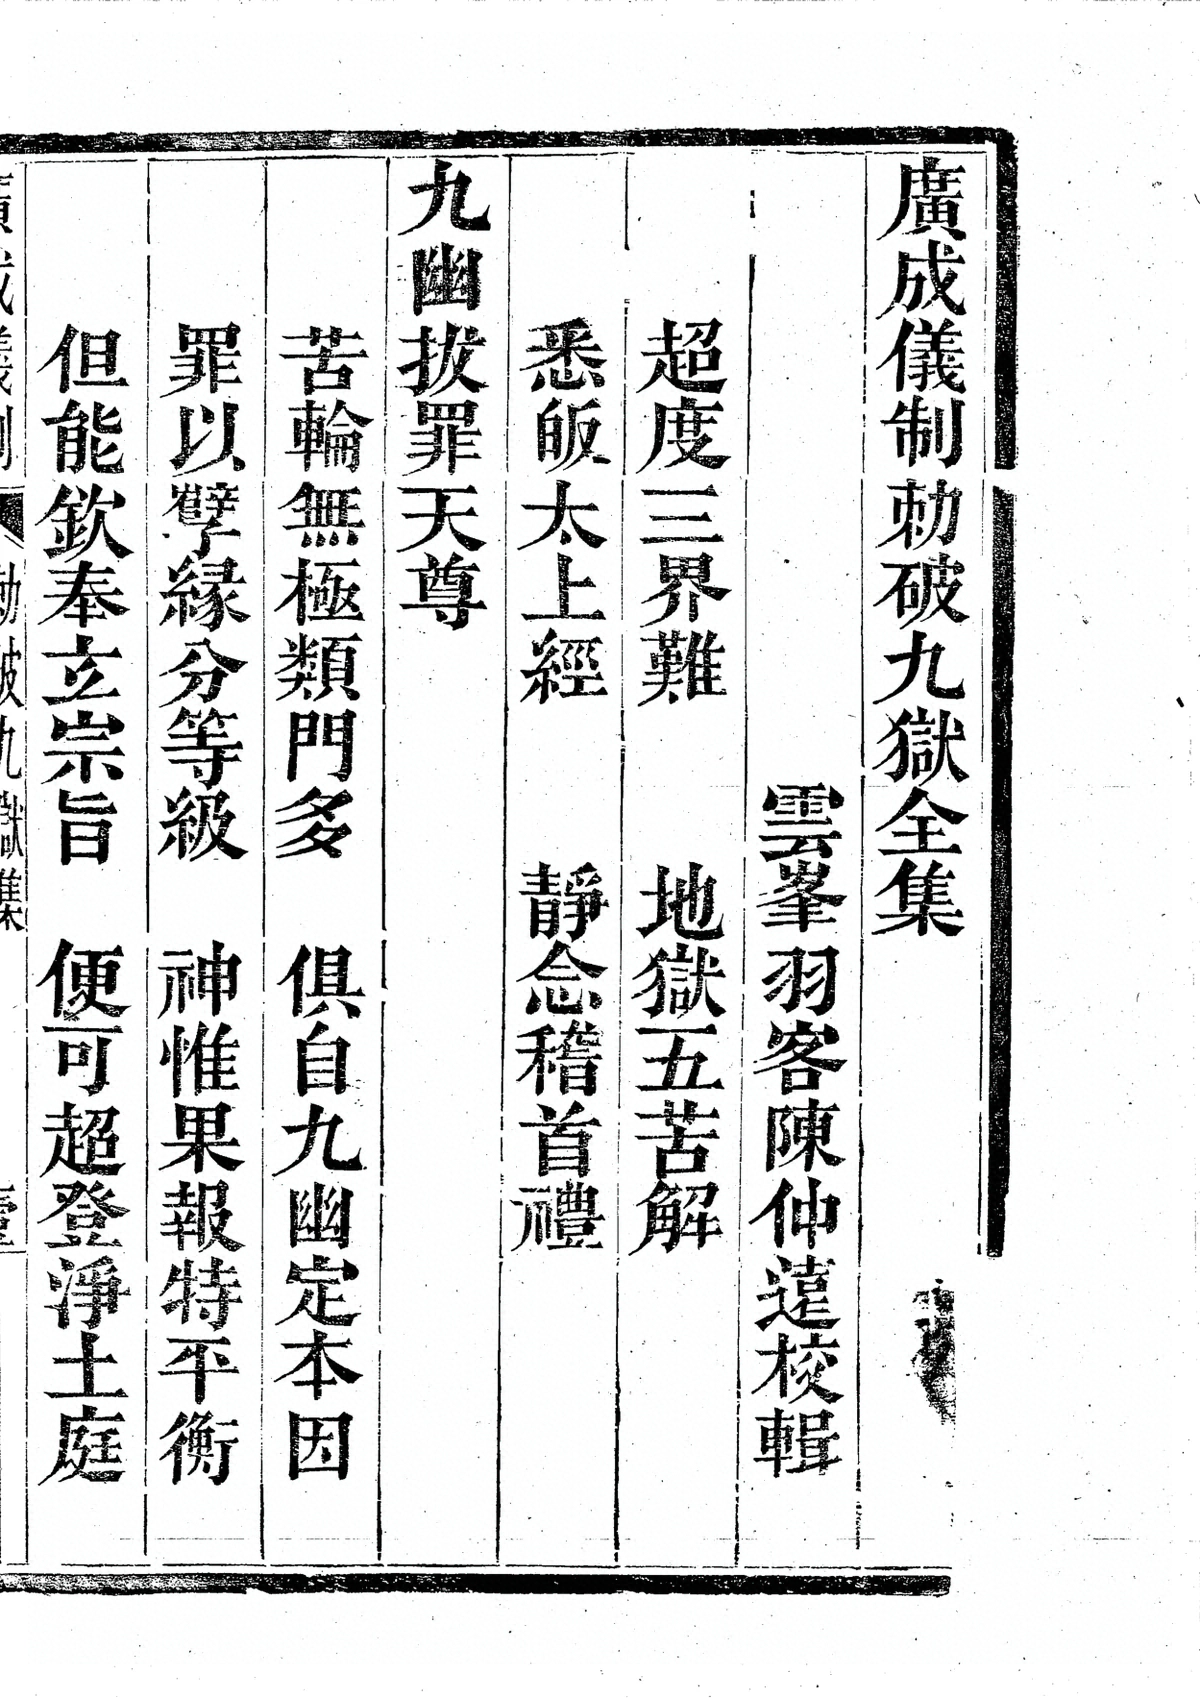 廣成儀制勅破九獄全集
雲峯羽客陳仲遠校輯
超度三界難 地獄五苦解
悉皈太上經 靜念稽首禮
九幽拔罪天尊
苦輪無極類門多 俱自九幽定本因
罪以孽緣分等級 神惟果報特平衡
但能欽奉立宗旨 便可超登淨土庭
廣成儀制 勅破九獄集 壹